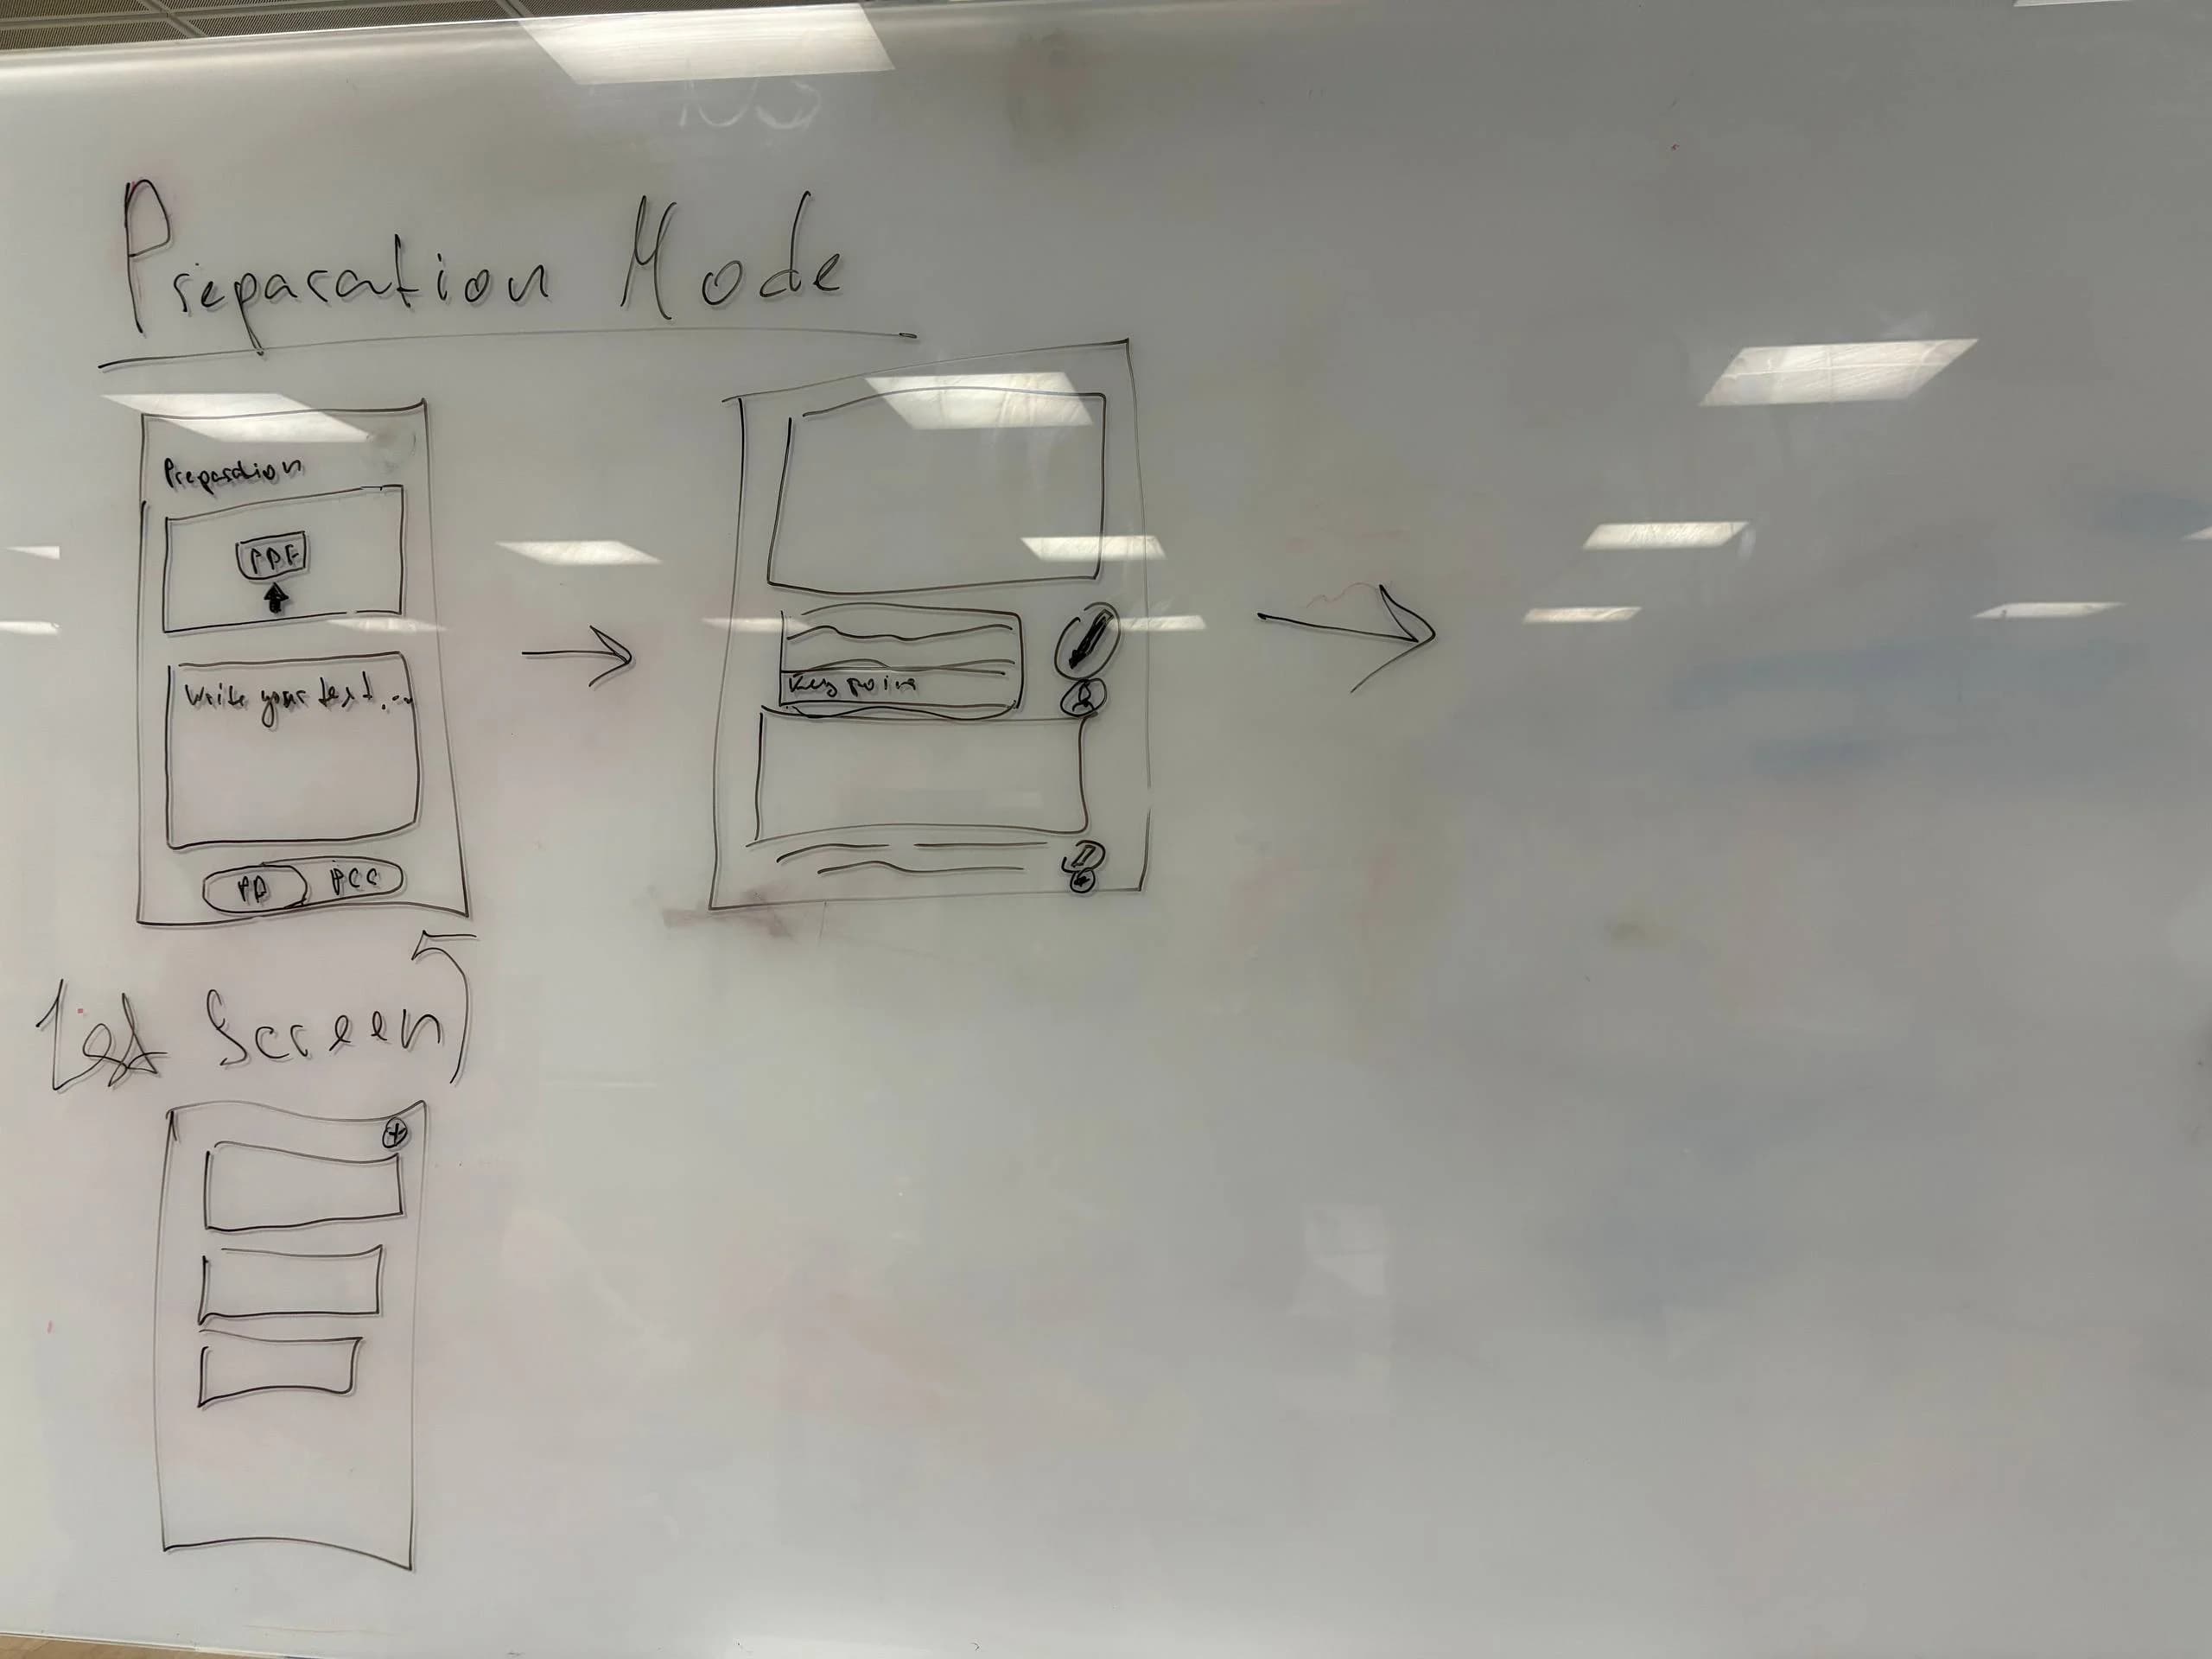 Preparation Mode
Preparation
PDF
Write your text...
Key point
List Screen